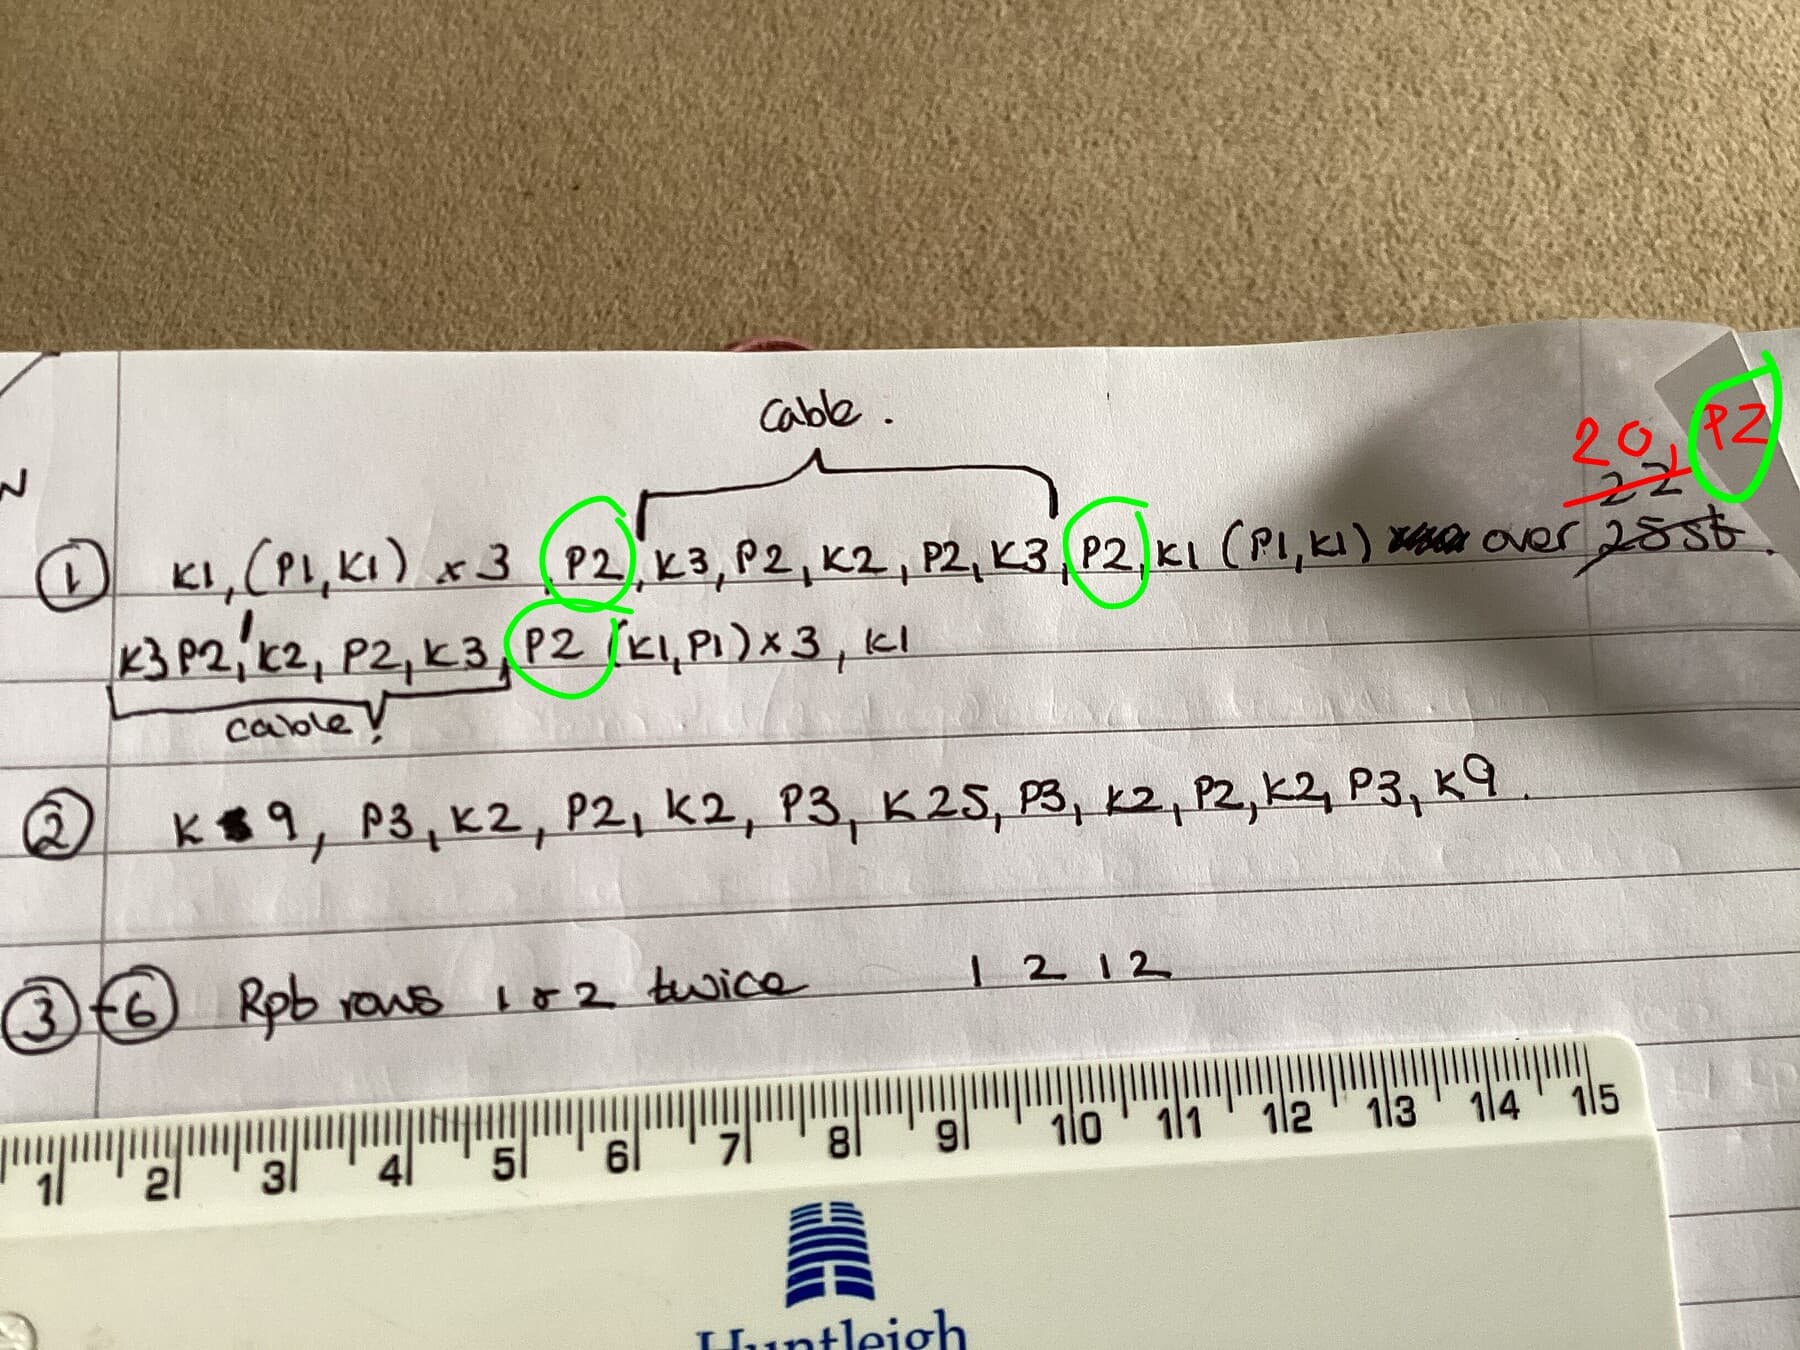 cable.
20, P2
22
① K1, (P1, K1) x 3, P2, K3, P2, K2, P2, K3, P2, K1 (P1, K1) over 25st.
K3 P2, K2, P2, K3, P2 (K1, P1) x 3, K1
cable
② K 9, P3, K2, P2, K2, P3, K25, P3, K2, P2, K2, P3, K9.
③-⑥ Rpb rows 1 & 2 twice 1 2 1 2
1 2 3 4 5 6 7 8 9 10 11 12 13 14 15
Huntleigh